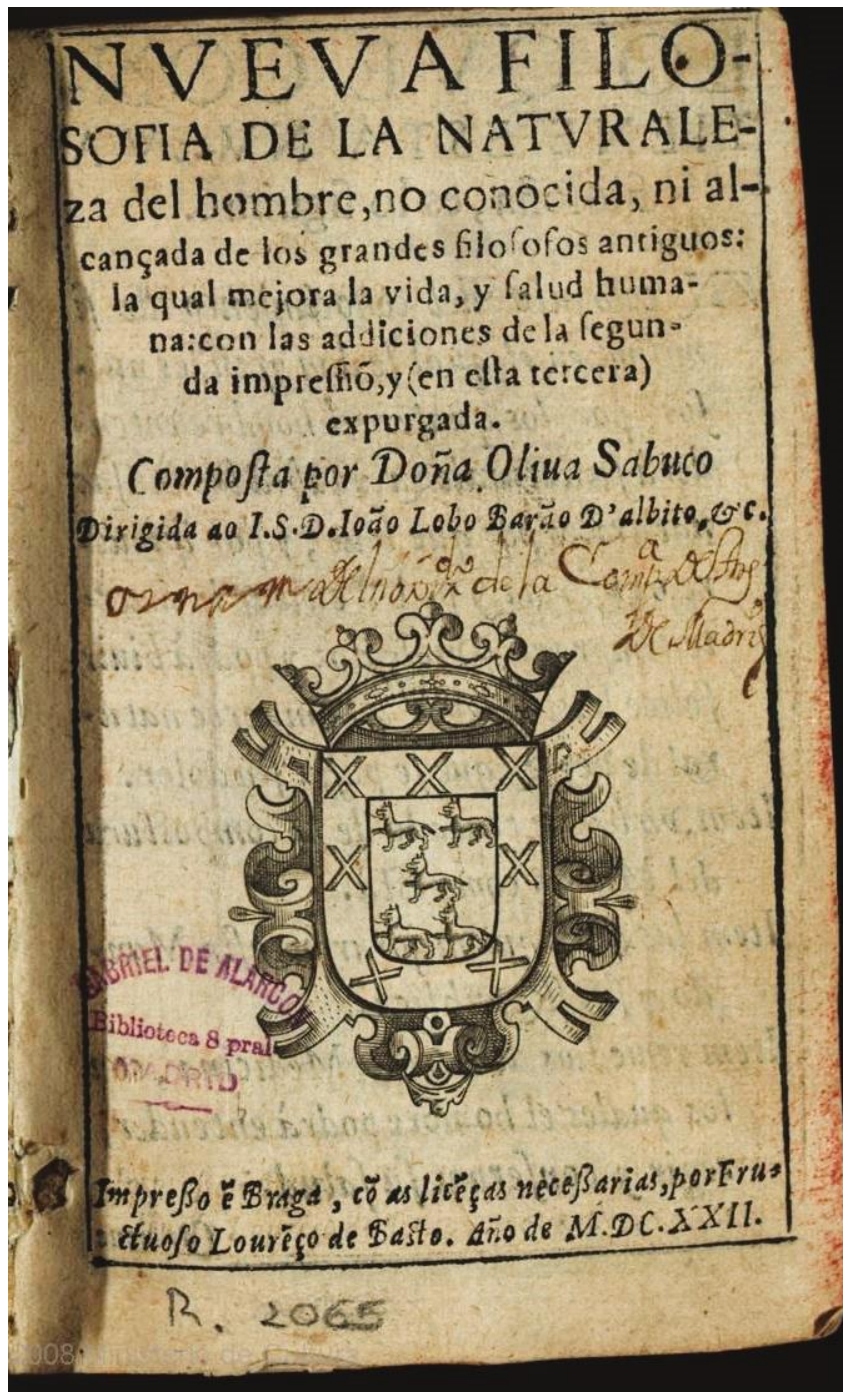 NVEVA FILO-
SOFIA DE LA NATVRALE-
za del hombre, no conocida, ni al-
cançada de los grandes filoſofos antiguos:
la qual mejora la vida, y ſalud huma-
na: con las addiciones de la ſegun-
da impreſsiõ, y (en eſta tercera)
expurgada.
Compoſta por Doña Oliua Sabuco
Dirigida ao I.S.D. Ioão Lobo Barão D'albito, &c.
de la
De Madrid
GABRIEL DE ALARCON
Biblioteca 8 pral
MADRID
Impreſſo ẽ Braga, cõ as licẽças neceſſarias, por Fru-
ctuoſo Lourẽço de Baſto. Año de M.DC.XXII.
R. 2065
2008 Ministerio de Cultura